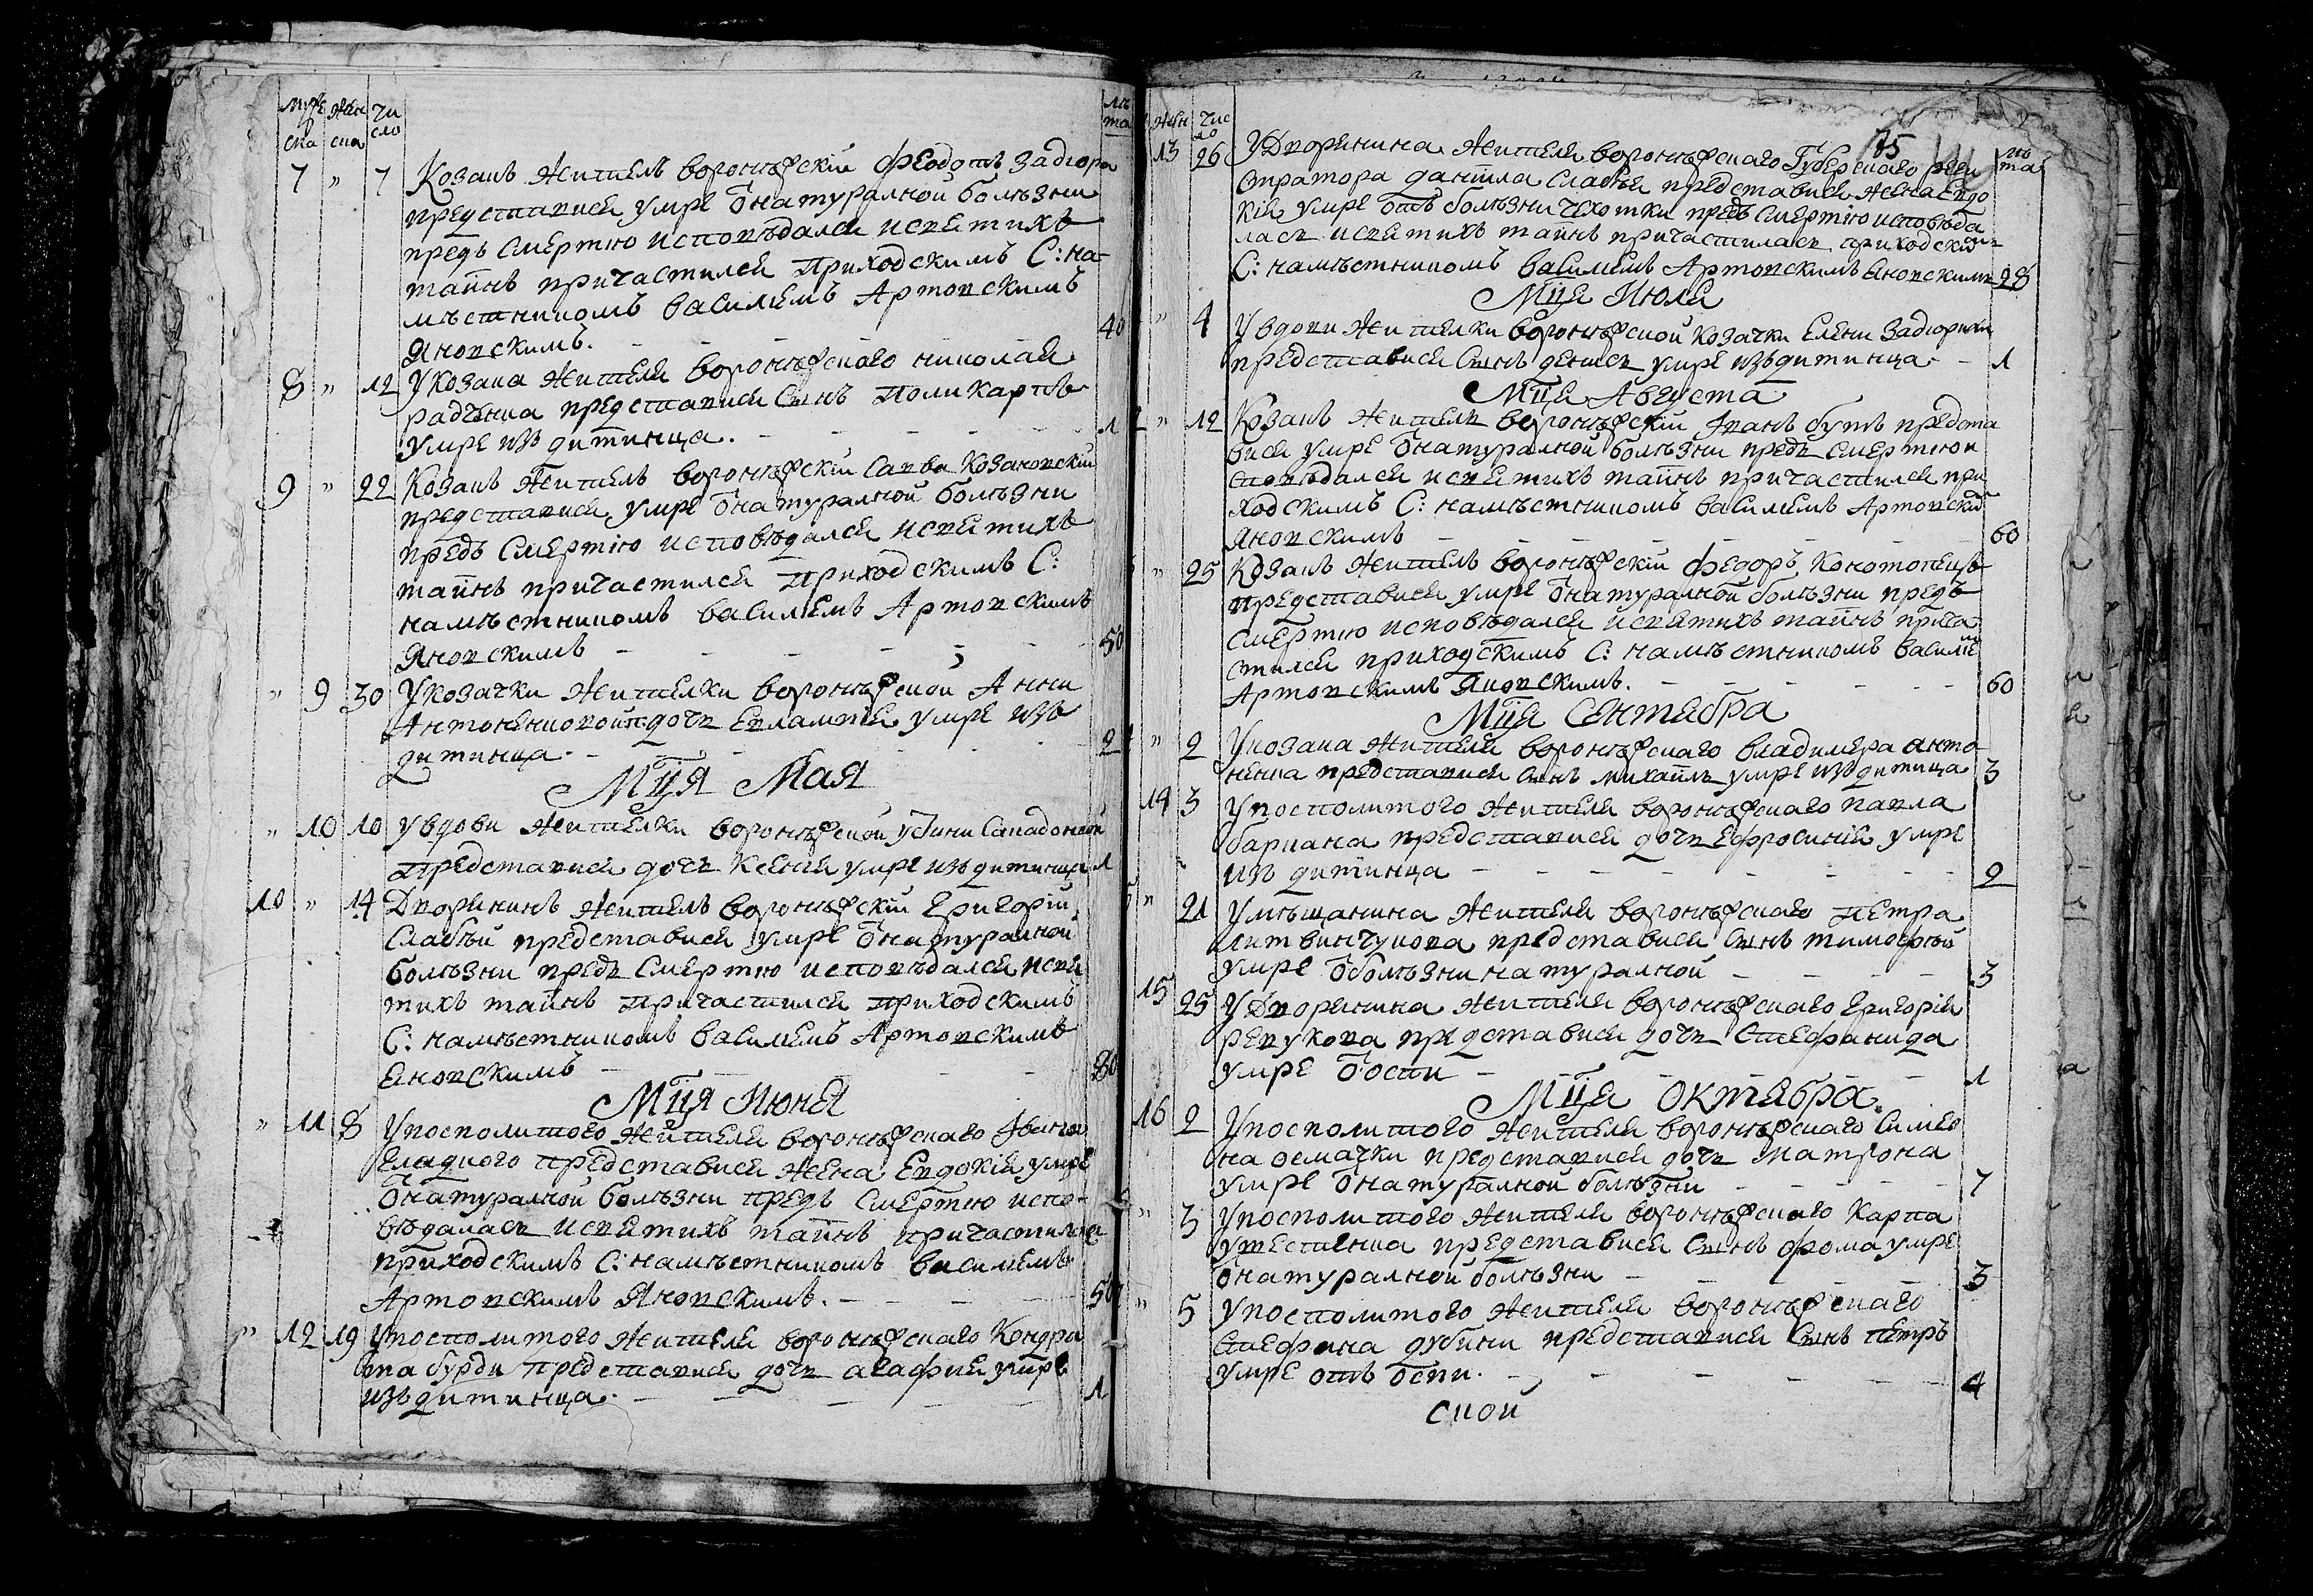 муже жен чи лѣ
ска ска сло та
7 " 7 Козакъ житель воронѣжскій Феодотъ Задюра
представися умре ѿ натуралной болѣзни
предъ смертию исповѣдался и святихъ
тайнъ причастился приходскимъ С: на-
мѣстникомъ Василиемъ Артовскимъ
Яновскимъ. 40
8 " 12 У козака жителя воронѣжского Николая
радченка представися сынъ Поликарпъ
умре изъ дитинца. 1
9 " 22 Козакъ житель воронѣжскій Савва Козановскій
представися умре ѿ натуралной болѣзни
предъ смертію исповѣдался и святихъ
тайнъ причастился приходскимъ С:
намѣстникомъ Василиемъ Артовскимъ
Яновскимъ 50
" 9 30 У козачки жителки воронѣжской Анни
Антоненковой дочь Евлампия умре изъ
дитинца 2
Мця Мая
" 10 10 У вдови жителки воронѣжской Устини
представися дочь Ксения умре изъ дитинца 1
10 " 14 Дворянинъ житель воронѣжскій Григорій
Слабѣй представися умре ѿ натуралной
болѣзни предъ смертию исповѣдался и свя
тихъ тайнъ причастился приходскимъ
С: намѣстникомъ Василиемъ Артовскимъ
Яновскимъ 80
Мця Июня
" 11 8 У посполитого жителя воронѣжского
гладкого представися жена Евдокія умре
ѿ натуралной болѣзни предъ смертию испо-
вѣдалась и святихъ тайнъ причастилася
приходскимъ С: намѣстникомъ Василиемъ
Артовскимъ Яновскимъ. 50
" 12 19 У посполитого жителя воронѣжского Кондра
та бурди представися дочь агафия умре
изъ дитинца. 1
жен чис лѣ
ло та
75
13 26 У Дворянина жителя воронѣжского Губернского реги
стратора данiила слабѣя представися жена Евдо
кія умре отъ болѣзни чахотки предъ смертію исповѣда
лась и святихъ тайнъ причастилась приходскимъ
С: намѣстникомъ Василиемъ Артовскимъ Яновскимъ 28
Мця Июля
" 4 У вдови жителки воронѣжской козачки Елени Задюрихи
представися сынъ денисъ умре изъ дитинца 1
Мця Августа
" 12 Козакъ житель воронѣжскій Іванъ бутъ предста
вися умре ѿ натуралной болѣзни предъ смертию и
сповѣдался и святихъ тайнъ причастился при
ходскимъ С: намѣстникомъ Василиемъ Артовским
Яновскимъ 60
" 25 Козакъ житель воронѣжскій Федоръ Конотопецъ
представися умре ѿ натуралной болѣзни предъ
смертию исповѣдался и святихъ тайнъ прича
стился приходскимъ С: намѣстникомъ Василие
Артовскимъ Яновскимъ. 60
Мця Сентября
" 2 У козака жителя воронѣжского владимера анто
ненка представися сынъ михаилъ умре изъ дитинца 3
14 3 У посполитого жителя воронѣжского павла
барпана представися дочь Ефросинія умре
изъ дитинца 2
" 21 У мѣщанина жителя воронѣжского петра
литвинчукова представися сынъ тимофей
умре ѿ болѣзни натуралной 3
15 25 У Дворянина жителя воронѣжского Григорія
ревукова представися дочь Стефанида
умре ѿ оспи 1
Мця октября.
16 2 У посполитого жителя воронѣжского Симео
на осмачки представися дочь матрона
умре ѿ натуралной болѣзни 7
" 3 У посполитого жителя воронѣжского Карпа
представися сынъ фома умре
ѿ натуралной болѣзни 3
" 5 У посполитого жителя воронѣжского
Стефана дубини представися сынъ петръ
умре отъ оспи. 4
ской